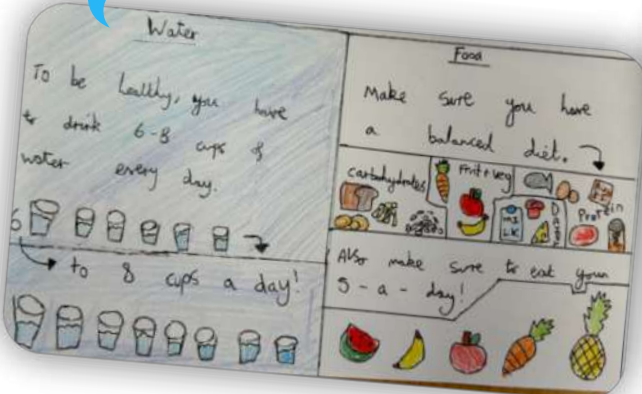 Water
To be healthy, you have
to drink 6-8 cups of
water every day.
6
to 8 cups a day!
Food
Make sure you have
a balanced diet.
carbohydrates
Fruit + veg
MILK
Dairy
Protein
Also make sure to eat your
5-a-day!